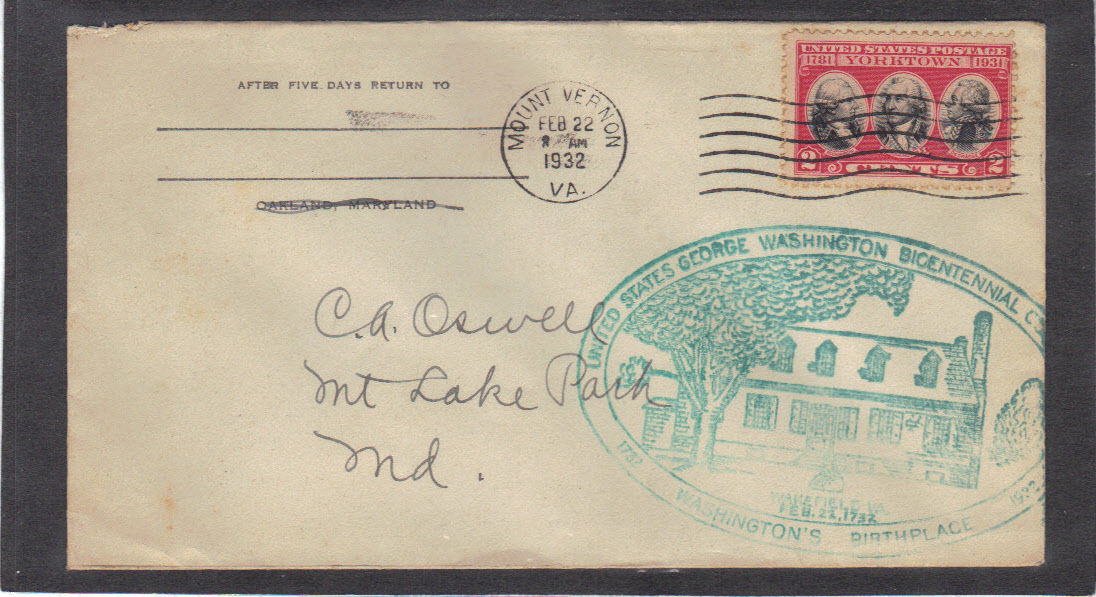 AFTER FIVE DAYS RETURN TO
OAKLAND, MARYLAND
MOUNT VERNON
FEB 22
AM
1932
VA.
UNITED STATES POSTAGE
1781 YORKTOWN 1931
2 CENTS 2
C.A. Oswell
Mt Lake Park
Md.
UNITED STATES GEORGE WASHINGTON BICENTENNIAL
WAKEFIELD, VA.
FEB. 22, 1732
1732 WASHINGTON'S BIRTHPLACE 1932